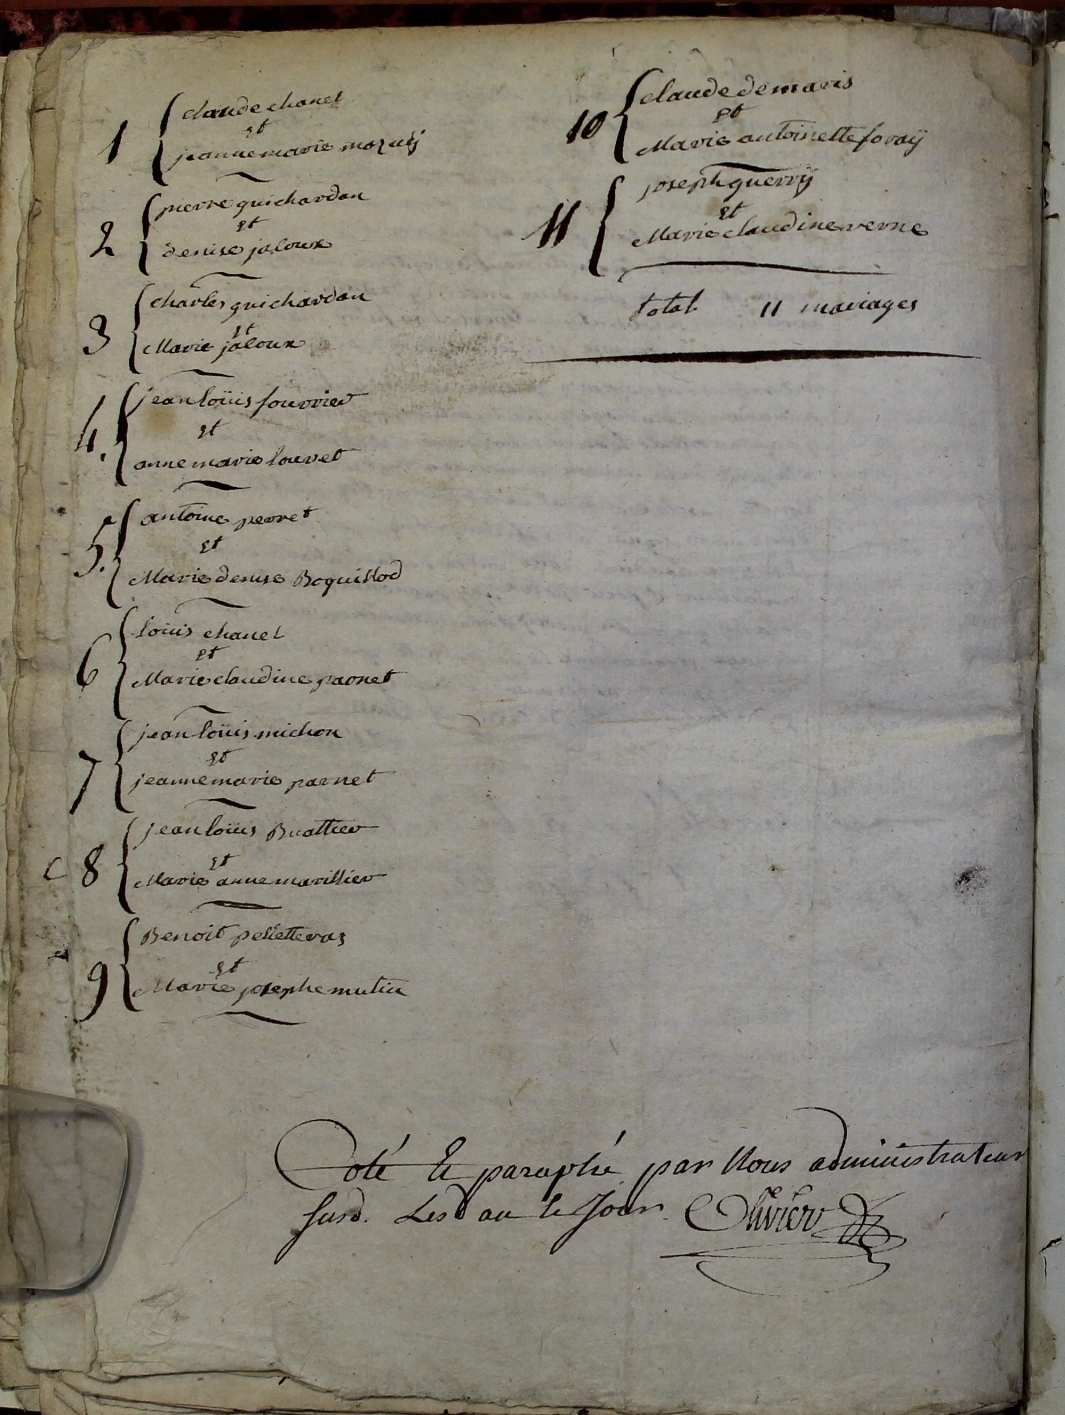 1 claude chanel
et
jeanne marie mazuij
2 pierre guichardan
et
denise jaloux
3 charles guichardan
et
Marie jaloux
4. jean loüis fourrier
et
anne marie louvet
5. antoine perret
et
Marie denise Boquillod
6 loüis chanel
et
Marie claudine parnet
7 jean loüis michon
et
jeanne marie parnet
c 8 jean loüis Buattier
et
Marie anne marillier
9 Benoit pelletteras
et
Marie josephe mutin
10 claude demaris
et
Marie antoinette foraij
11 joseph guerrij
et
Marie claudine verne
total 11 mariages
Coté Et paraphé par Nous administrateur
susd. Lesd an le Jour. Olivier